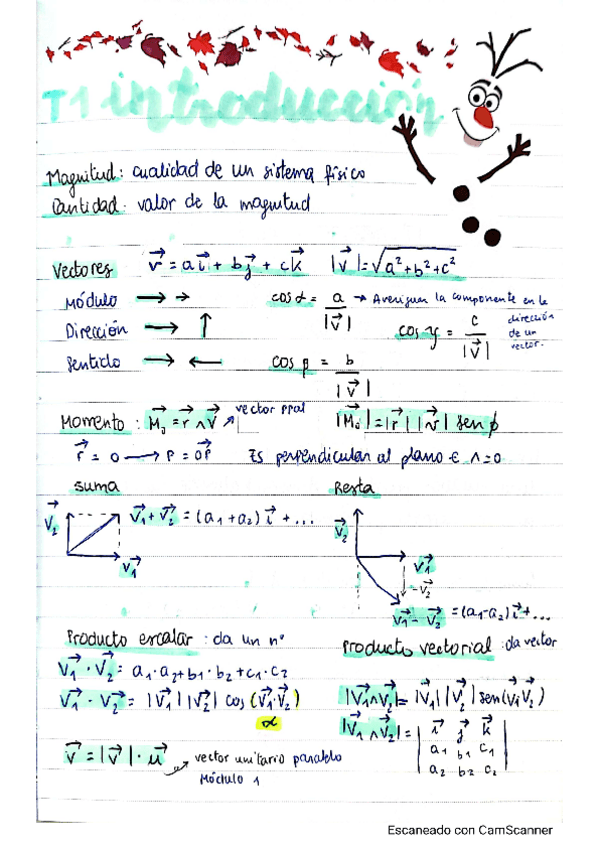 T1 introducción
Magnitud: cualidad de un sistema físico
Cantidad: valor de la magnitud
Vectores v⃗ = a i⃗ + b j⃗ + c k⃗ |v⃗| = √a²+b²+c²
Módulo → →
cos α = a / |v⃗| → Averiguar la componente en la dirección de un vector.
Dirección → ↑
cos γ = c / |v⃗|
Sentido → ←
cos β = b / |v⃗|
Momento: M⃗₀ = r⃗ ∧ v⃗ ↗ vector ppal |M⃗₀| = |r⃗| |v⃗| sen φ
r⃗ = 0 → P = 0P⃗ Es perpendicular al plano ∈ ∧=0
suma
v⃗1 + v⃗2 = (a1 + a2) i⃗ + ...
v⃗2
v⃗1
Resta
v⃗2
v⃗1
-v⃗2
v⃗1 - v⃗2 = (a1-a2) i⃗ + ...
Producto escalar: da un nº
v⃗1 · v⃗2 = a1·a2 + b1·b2 + c1·c2
v⃗1 · v⃗2 = |v⃗1| |v⃗2| cos (v⃗1·v⃗2)
α
v⃗ = |v⃗| · u⃗ → vector unitario paralelo
Módulo 1
Producto vectorial: da vector
|v⃗1∧v⃗2| = |v⃗1| |v⃗2| sen(v⃗1 v⃗2)
|v⃗1∧v⃗2| = | i⃗ j⃗ k⃗ |
a1 b1 c1
a2 b2 c2
Escaneado con CamScanner